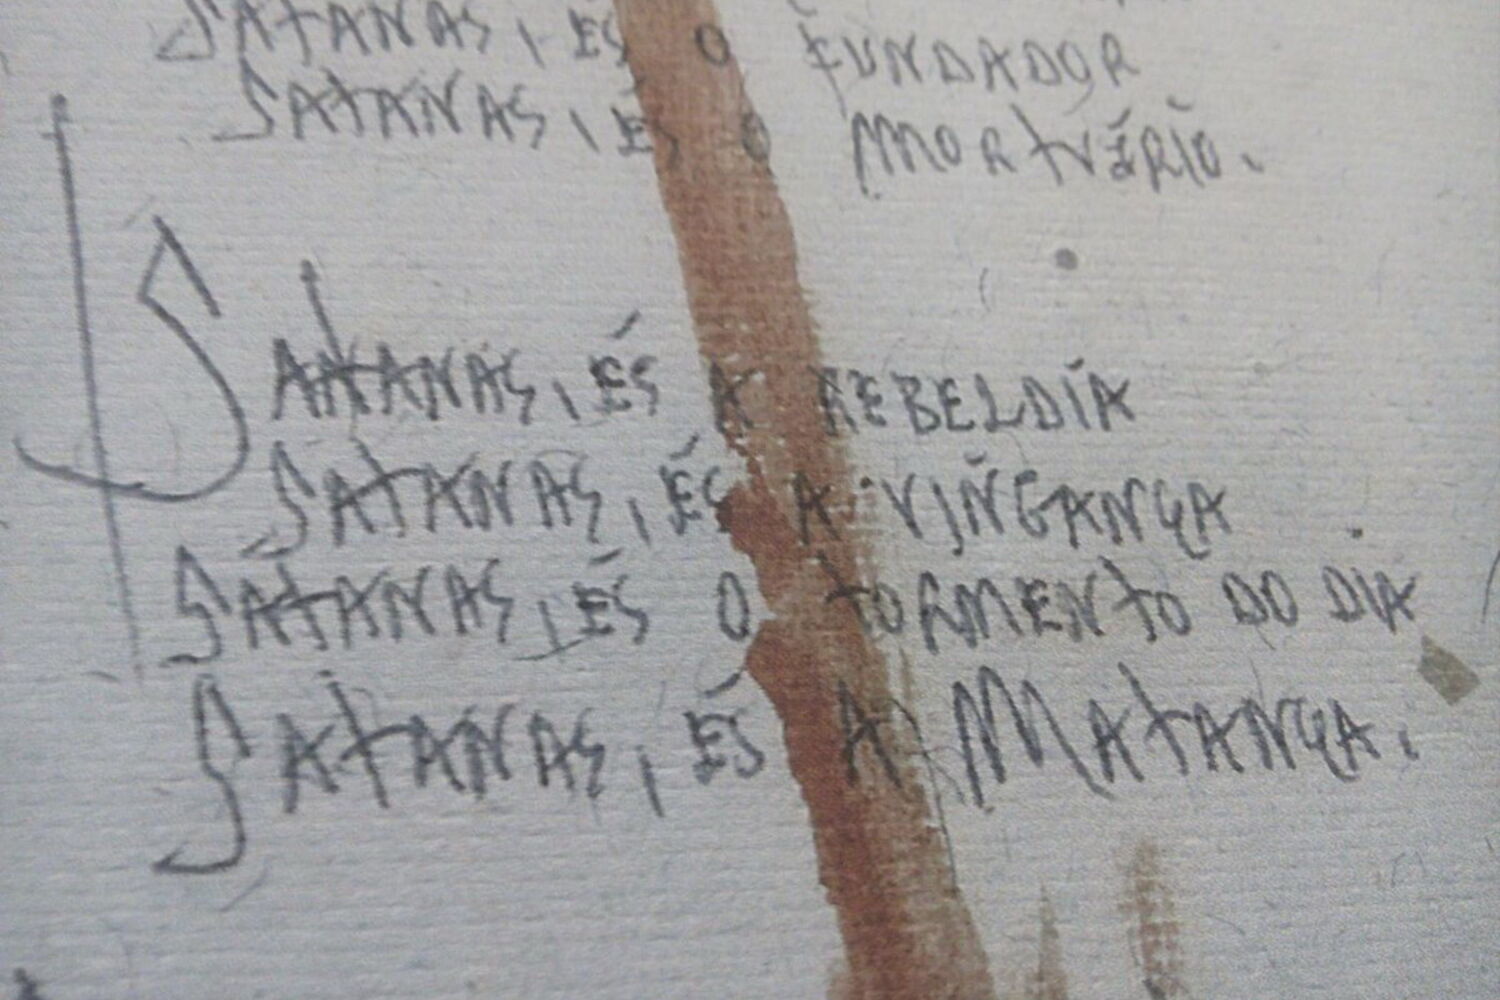 SATANAS, ÉS O FUNDADOR
SATANAS, ÉS O MORTUÉRIO.
SATANAS, ÉS A REBELDÍA
SATANAS, ÉS A VINGANÇA
SATANAS, ÉS O TORMENTO DO DIA
SATANAS, ÉS A MATANÇA.